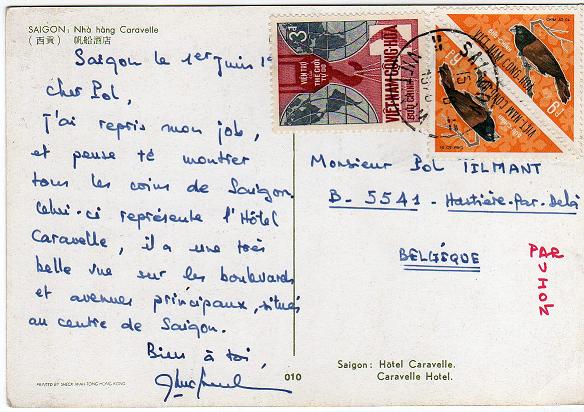 SAIGON: Nhà hàng Caravelle
(西貢) 帆船酒店
Saigon le 1er Juin
cher Pol,
J'ai repris mon job,
et pense te montrer
tous les coins de Saigon.
Celui-ci représente l'Hôtel
Caravelle, il a une très
belle vue sur les boulevards
et avenues principaux, situés
au centre de Saigon.
Bien à toi,
PRINTED BY SHECK WAH TONG HONG KONG
010
3đ
VIỆN TRỢ
THẾ GIỚI
TỰ DO
VIỆT-NAM CỘNG-HÒA
BƯU-CHÍNH
VIỆT-NAM CỘNG-HÒA
VIỆT-NAM CỘNG-HÒA
SAIGON
Monsieur Pol TILMANT
B-5541-Hastière-Par-Delà
BELGÉQUE
PAR
AVION
Saigon: Hôtel Caravelle.
Caravelle Hotel.